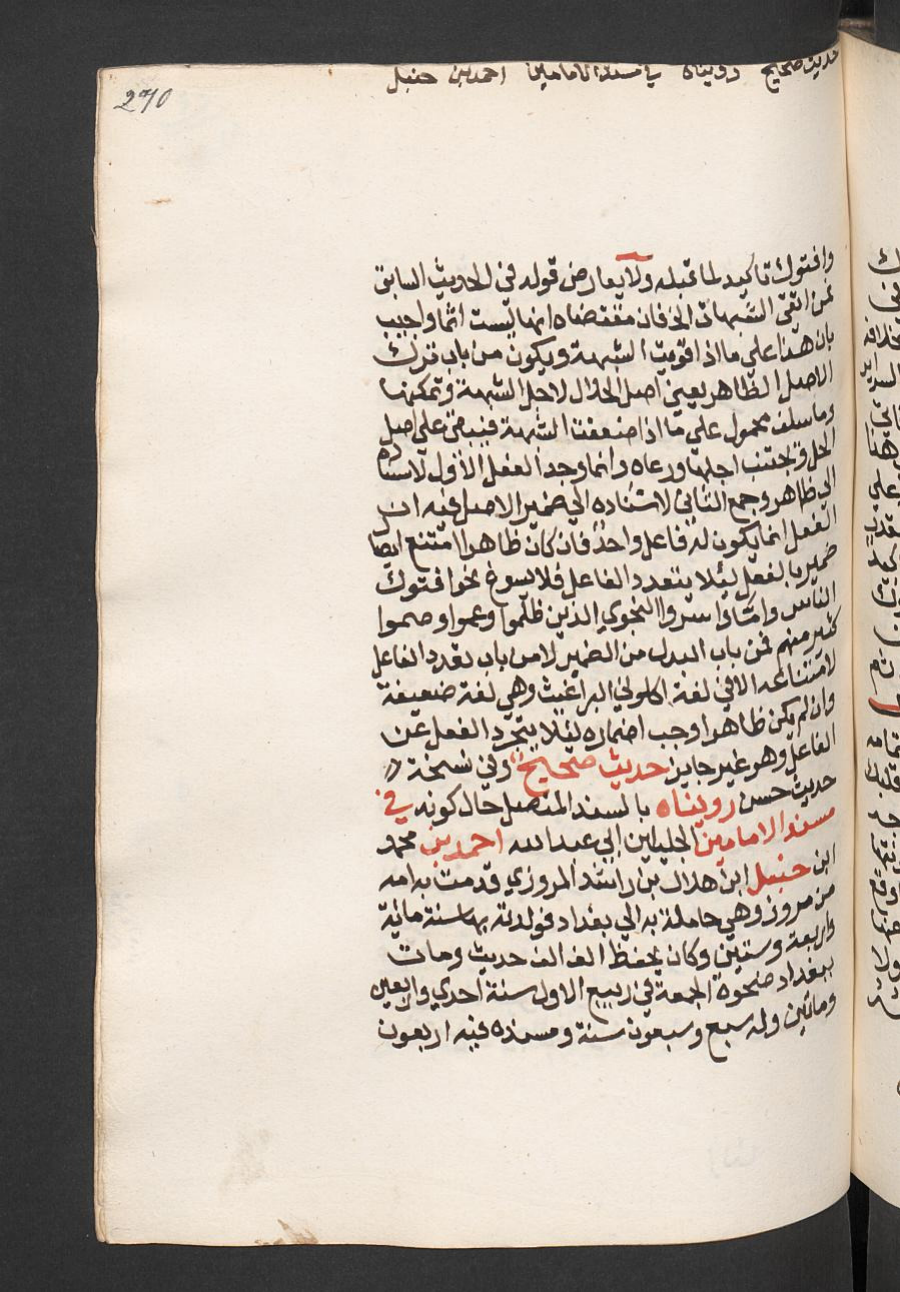 حديث صحيح رويناه في مسند الامامين احمد بن حنبل
270
وافتوك تاكيد لما قبله ولا يعارض قوله في الحديث السابق
فمن اتقى الشبهات الخ فان مقتضاه انها ليست اثما واجيب
بان هذا على ما اذا قويت الشبهة ويكون من باب ترك
الاصل الظاهر يعني اصل الحلال لاجل الشبهة وتمكنها
وما سلف محمول على ما اذا ضعفت الشبهة فيبقى على اصل
الحل ويجتنب اجلها ورعا وانما وجد الفعل الاول لاسناده
الى ظاهر وجمع الثاني لاستناده الي ضمير الاصل فيه ان
الفعل انما يكون له فاعل واحد فان كان ظاهرا امتنع ايصا
ضمير بالفعل ليلا يتعدد الفاعل فلا يسوغ نحو افتوك
الناس واما واسروا النجوي الذين ظلموا وعموا وصموا
كثير منهم فمن باب البدل من الضمير لا من باب تعدد الفاعل
لامتناعه الا في لغة اكلوني البراغيث وهي لغة ضعيفة
وان لم يكن ظاهرا وجب اضماره ليلا يتجرد الفعل عن
الفاعل وهو غير جايز حديث صحيح وفي نسخة
حديث حسن رويناه بالسند المتصل حال كونه في
مسند الامامين الجليلين ابي عبد الله احمد بن محمد
ابن حنبل ابن هلال بن راشد المروزي قدمت به امه
من مروز وهي حاملة به الي بغداد فولدته بها سنة ماية
واربعة وستين وكان يحفظ الف الف حديث ومات
ببغداد ضحوة الجمعة في ربيع الاول سنة احدي واربعين
وماتين وله سبع وسبعون سنة ومسنده فيه اربعون